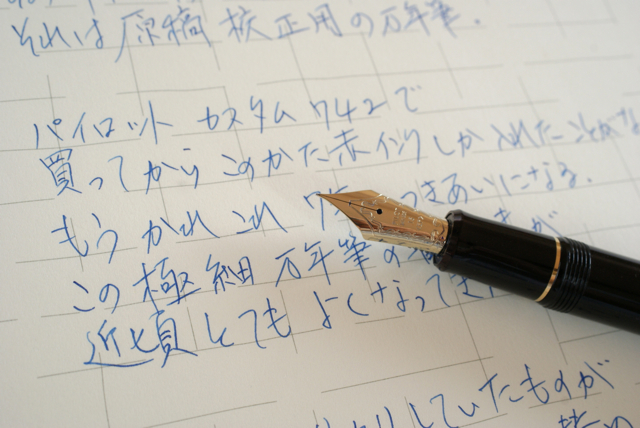 それは原稿校正用の万年筆.
パイロット カスタム742で
買ってからこのかた赤インクしか入れたことがな
もうかれこれ 7 つきあいになる.
この極細万年筆の が
近頃とてもよくなってき
していたものが